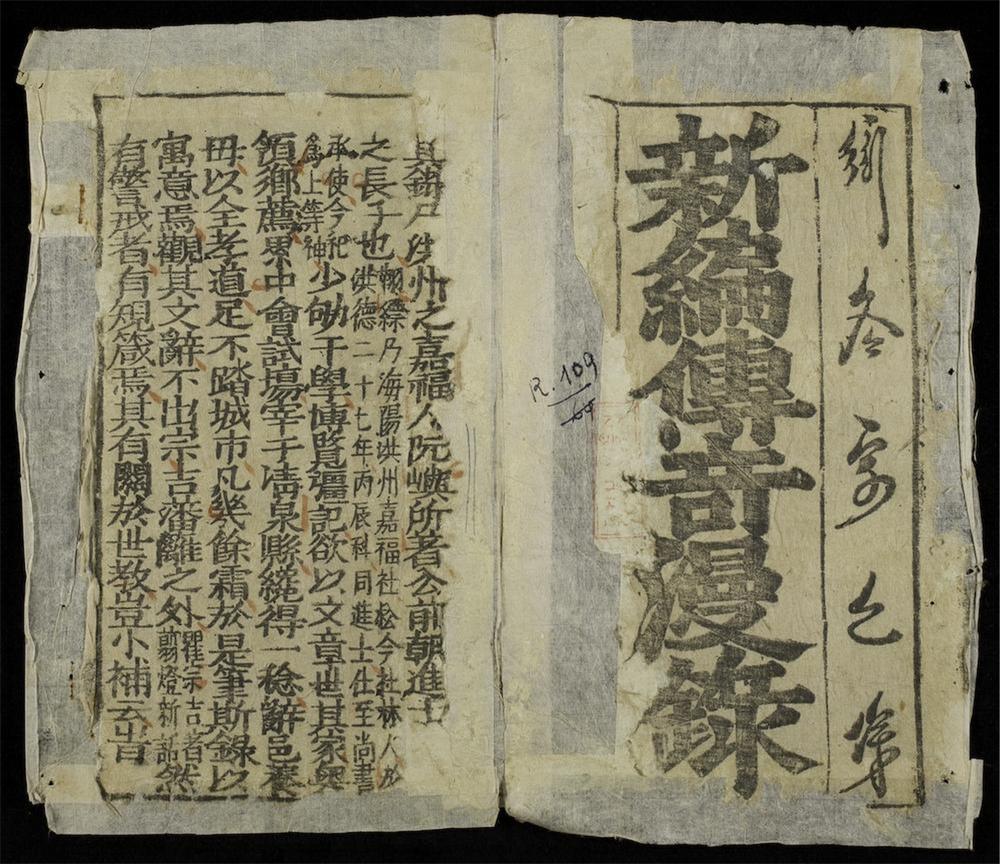 新編傳竒漫錄
R.109
其錄乃洪州之嘉福人阮嶼所著公前朝進士
之長子也
翔縹乃海陽洪州嘉福社松今社林人於
洪德二十七年丙辰科同進士仕至尚書
承使今祀
爲上等神
少劬于學博覽彊記欲以文章世其家粤
領鄉薦累中會試塲宰于清泉縣纔得一稔辭邑養
毋以全孝道足不踏城市凡幾餘霜於是筆斯錄以
寓意焉觀其文辭不出宗吉藩籬之外
瞿宗吉者
翦燈新話
然
有警戒者有規箴焉其有關於世教豈小補云旹